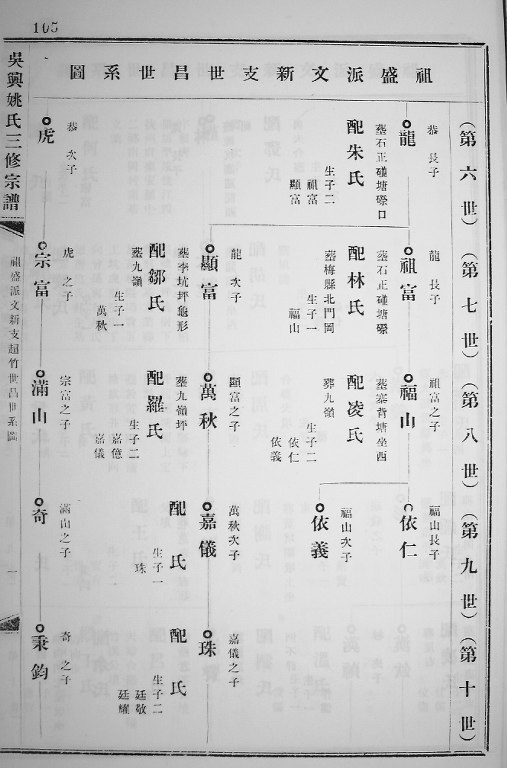 105
祖盛派文新支世昌世系圖
吳興姚氏三修宗譜
祖盛派文新支超竹世昌世系圖
(第六世)
(第七世)
(第八世)
(第九世)
(第十世)
恭長子
龍
墓石正磜塘磜口
配朱氏
生子二
祖富
顯富
恭次子
虎
龍長子
祖富
墓石正磜塘磜
配林氏
墓梅縣北門岡
生子一
福山
龍次子
顯富
墓李坑坪龜形
配鄒氏
墓九嶺
生子一
萬秋
虎之子
宗富
祖富之子
福山
墓寨背塘坐西
配凌氏
葬九嶺
生子二
依仁
依義
顯富之子
萬秋
墓九嶺坪
配羅氏
生子二
嘉億
嘉儀
宗富之子
滿山
福山長子
依仁
福山次子
依義
萬秋次子
嘉儀
配氏
生子一
珠
滿山之子
奇
嘉儀之子
珠
配氏
生子二
廷敬
廷耀
奇之子
秉鈞